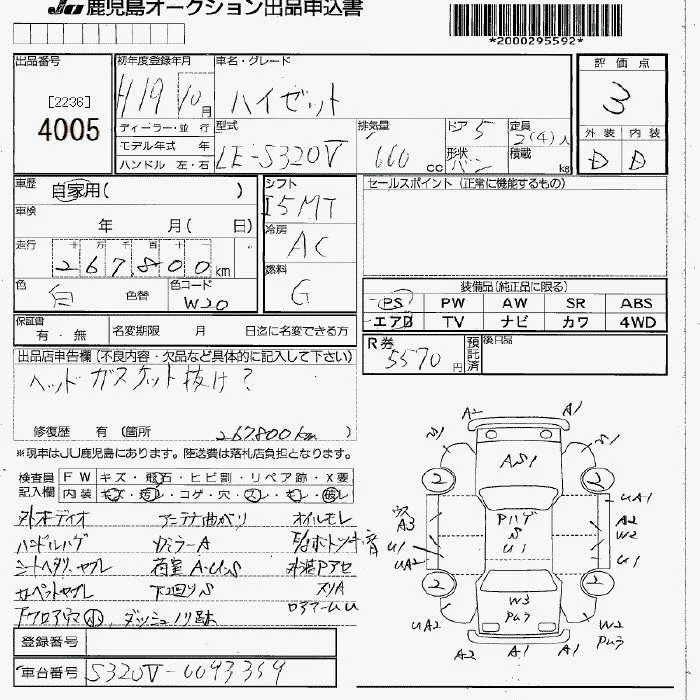 JU 鹿児島オークション出品申込書
*2000295592*
出品番号
[2236]
4005
初年度登録年月
H19 10月
車名・グレード
ハイゼット
ディーラー・並 行
モデル年式 年
ハンドル 左・右
型式
LE-S320V
排気量
660 cc
ドア 5
形状 バン
定員 2(4)人
積載 kg
評価点
3
外装 内装
D D
車歴
自家用( )
車検
年 月( 日)
走行
十 万 千 百 十
267800 km
色
白
色替
色コード
W20
シフト
I5MT
冷房
AC
燃料
G
セールスポイント (正常に機能するもの)
装備品(純正品に限る)
PS PW AW SR ABS
エアB TV ナビ カワ 4WD
保証書
有・無
名変期限 月 日迄に名変できる方
R券
5570円
預託済
後日品
出品店申告欄(不良内容・欠品など具体的に記入して下さい)
ヘッドガスケット抜け?
修復歴 有 (箇所
267800km)
※現車はJU鹿児島にあります。陸送費は落札店負担となります。
検査員
記入欄
FW キズ・飛石・ヒビ割・リペア跡・X要
内装 キズ・汚レ・コゲ・穴・スレ・キレ・破レ
外オーディオ アンテナ曲がり オイルモレ
ハンドルハゲ
シートヘタリ、ヤブレ 荷室A・U・S
カーペットヤブレ 下回りS
フロア穴 小 ダッシュノリ跡 ロアアームU
A2 A1
S1 S1
AS1
2 2
A3
U1
UA2
Pハゲ
S
U1
UA1
A2
W2
U1
2 2
W3
Pムラ
UA2
W2
Pムラ
A2 A1 A1
登録番号
車台番号 S320V-0093359